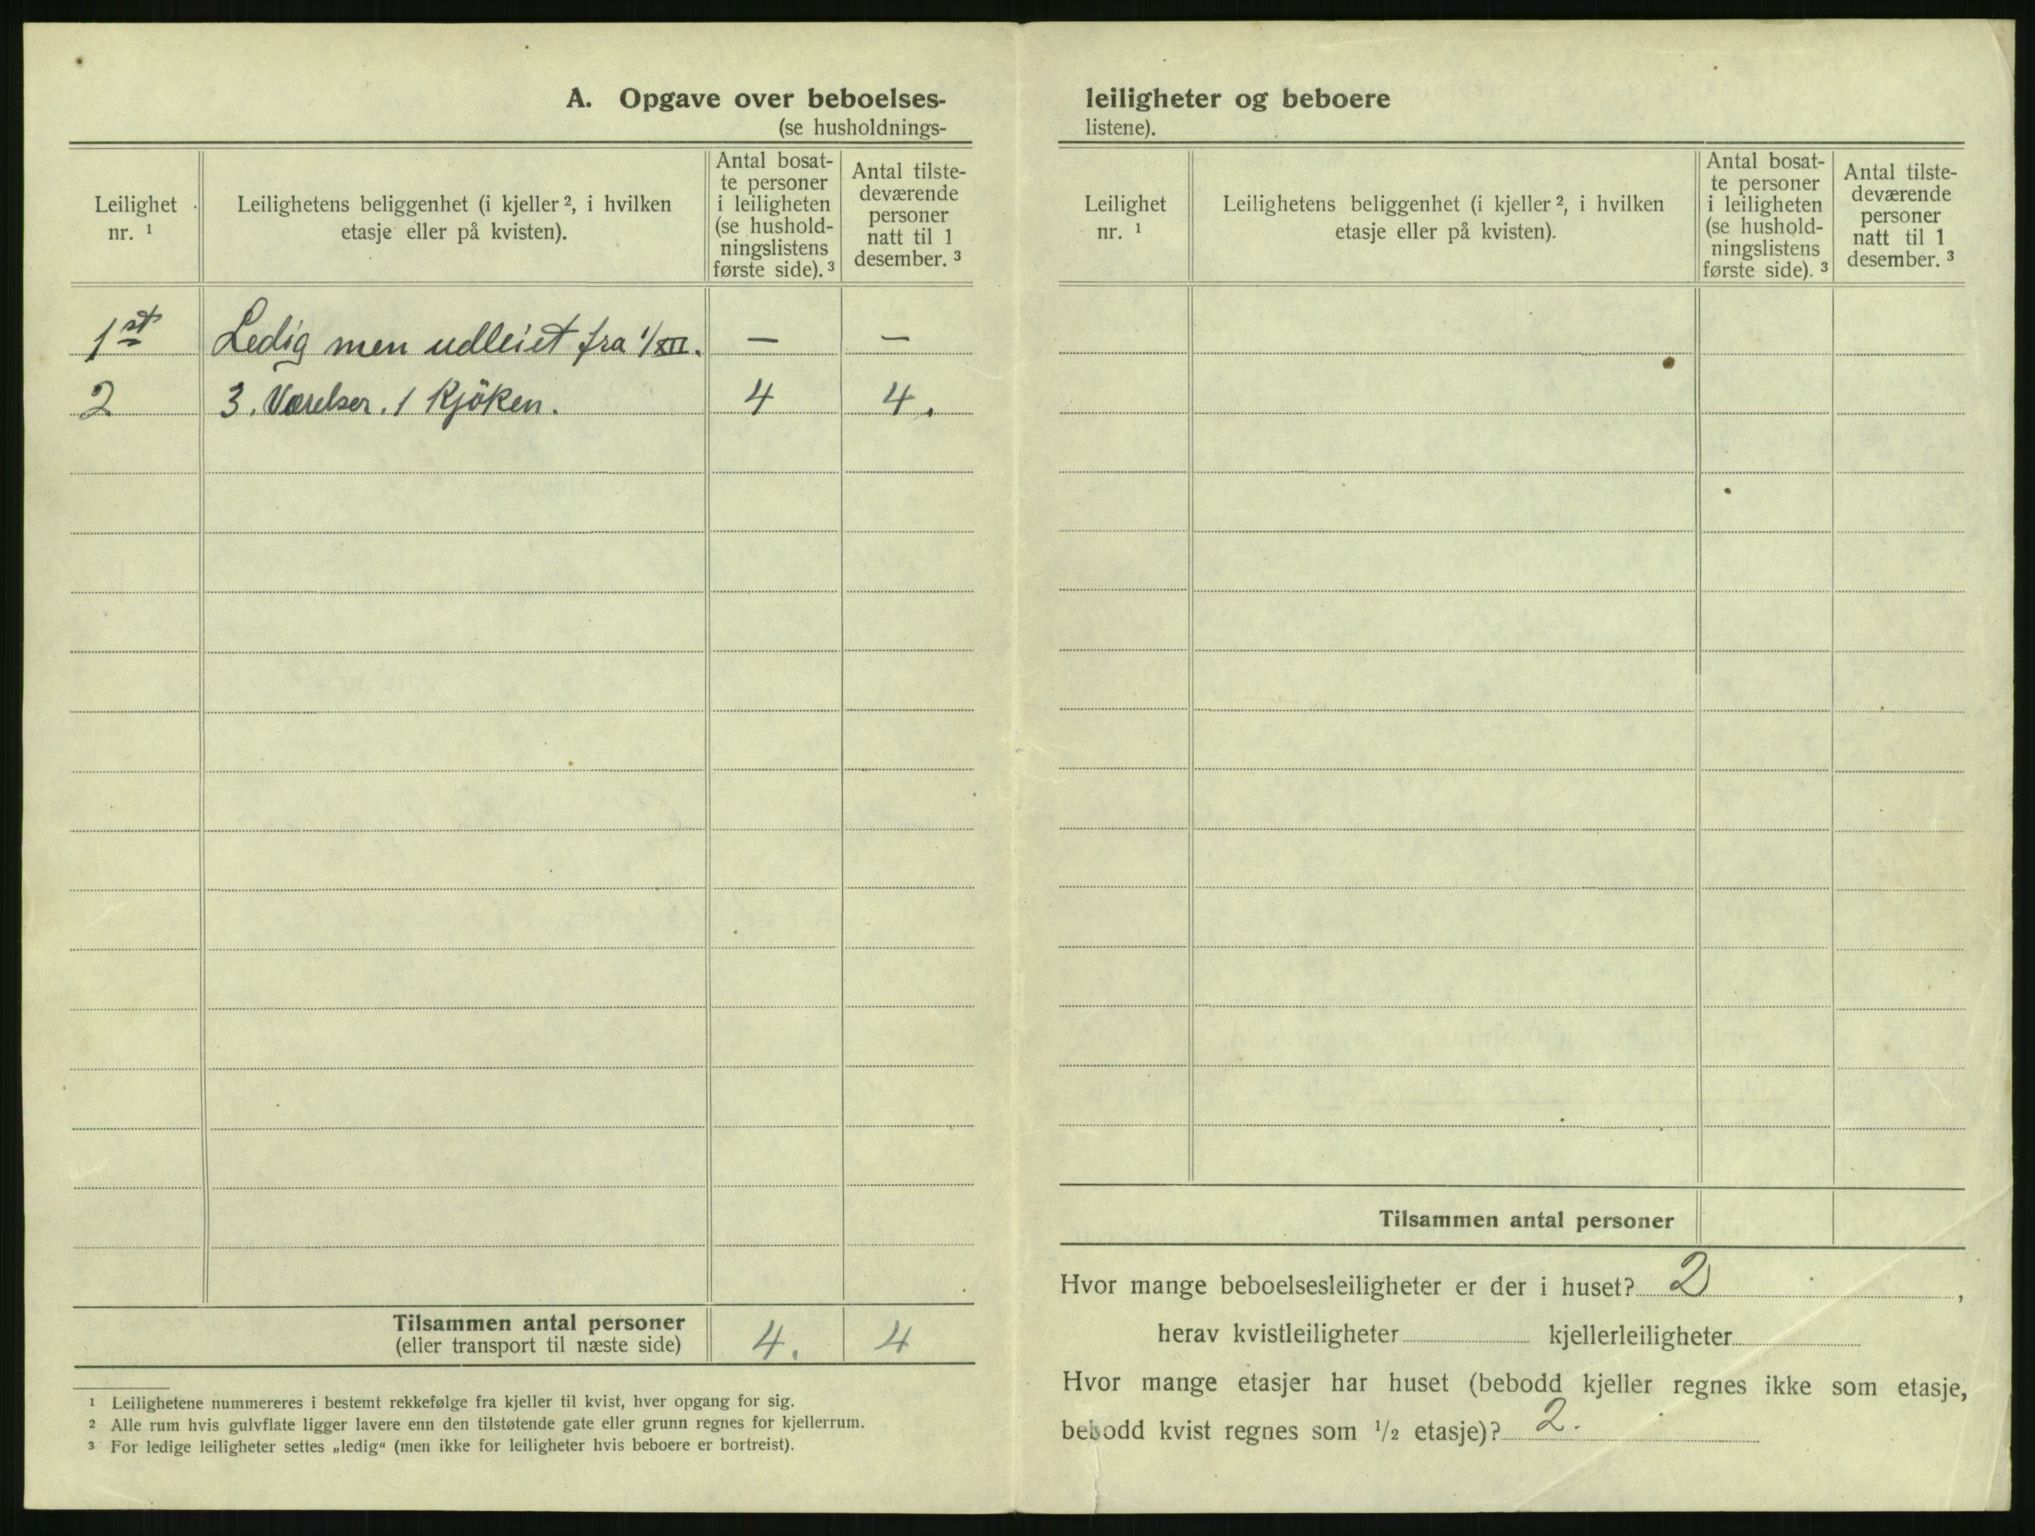 A. Opgave over beboelses-
(se husholdnings-
Leilighet
nr. ¹
Leilighetens beliggenhet (i kjeller ², i hvilken
etasje eller på kvisten).
Antal bosat-
te personer
i leiligheten
(se hushold-
ningslistens
første side). ³
Antal tilste-
deværende
personer
natt til 1
desember. ³
1st Ledig men udleiet fra 1/XII. — —
2 3. Værelser. 1 Kjöken. 4 4.
Tilsammen antal personer
(eller transport til næste side)
4. 4
¹ Leilighetene nummereres i bestemt rekkefølge fra kjeller til kvist, hver opgang for sig.
² Alle rum hvis gulvflate ligger lavere enn den tilstøtende gate eller grunn regnes for kjellerrum.
³ For ledige leiligheter settes „ledig“ (men ikke for leiligheter hvis beboere er bortreist).
leiligheter og beboere
listene).
Leilighet
nr. ¹
Leilighetens beliggenhet (i kjeller ², i hvilken
etasje eller på kvisten).
Antal bosat-
te personer
i leiligheten
(se hushold-
ningslistens
første side). ³
Antal tilste-
deværende
personer
natt til 1
desember. ³
Tilsammen antal personer
Hvor mange beboelsesleiligheter er der i huset? 2,
herav kvistleiligheter kjellerleiligheter
Hvor mange etasjer har huset (bebodd kjeller regnes ikke som etasje,
bebodd kvist regnes som ¹/₂ etasje)? 2.